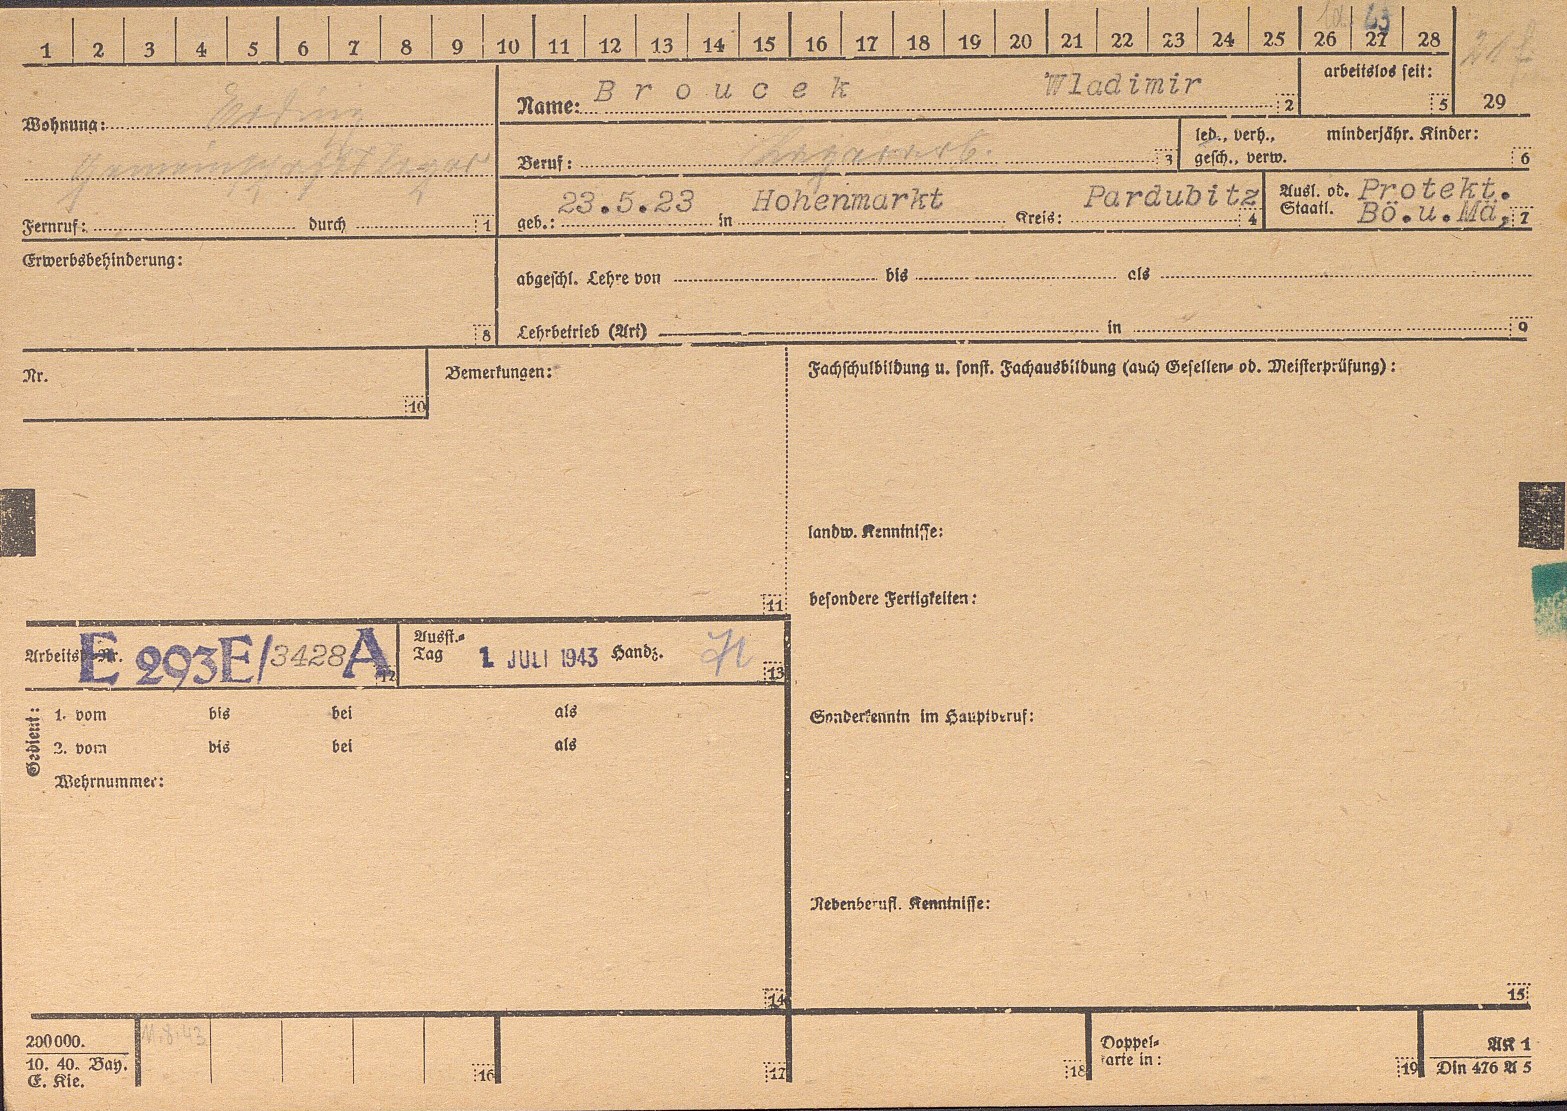 1 2 3 4 5 6 7 8 9 10 11 12 13 14 15 16 17 18 19 20 21 22 23 24 25 26 27 28 29
63
Wohnung: Erding
Gemeinschaftslager
Fernruf: durch 1
Name: Broucek Wladimir 2
arbeitslos seit: 5
Beruf: 3
led., verh., minderjähr. Kinder:
gesch., verw. 6
geb.: 23.5.23 in Hohenmarkt Kreis: Pardubitz 4
Ausl. od. Protekt.
Staatl. Bö.u.Mä, 7
Erwerbsbehinderung: 8
abgeschl. Lehre von bis als
Lehrbetrieb (Art) in 9
Nr. 10
Bemerkungen: 11
Fachschulbildung u. sonst. Fachausbildung (auch Gesellen- od. Meisterprüfung):
landw. Kenntnisse:
besondere Fertigkeiten:
Arbeitsb.-Nr. E 293E/3428A 12
Ausst.-
Tag 1. JULI 1943 Handz. 13
Gedient:
1. vom bis bei als
2. vom bis bei als
Wehrnummer:
14
Sonderkenntn im Hauptberuf:
Nebenberufl. Kenntnisse:
15
200000.
10. 40. Bay.
E. Kie.
11.8.43
16
17
18
Doppel-
karte in: 19
AK 1
Din 476 A 5